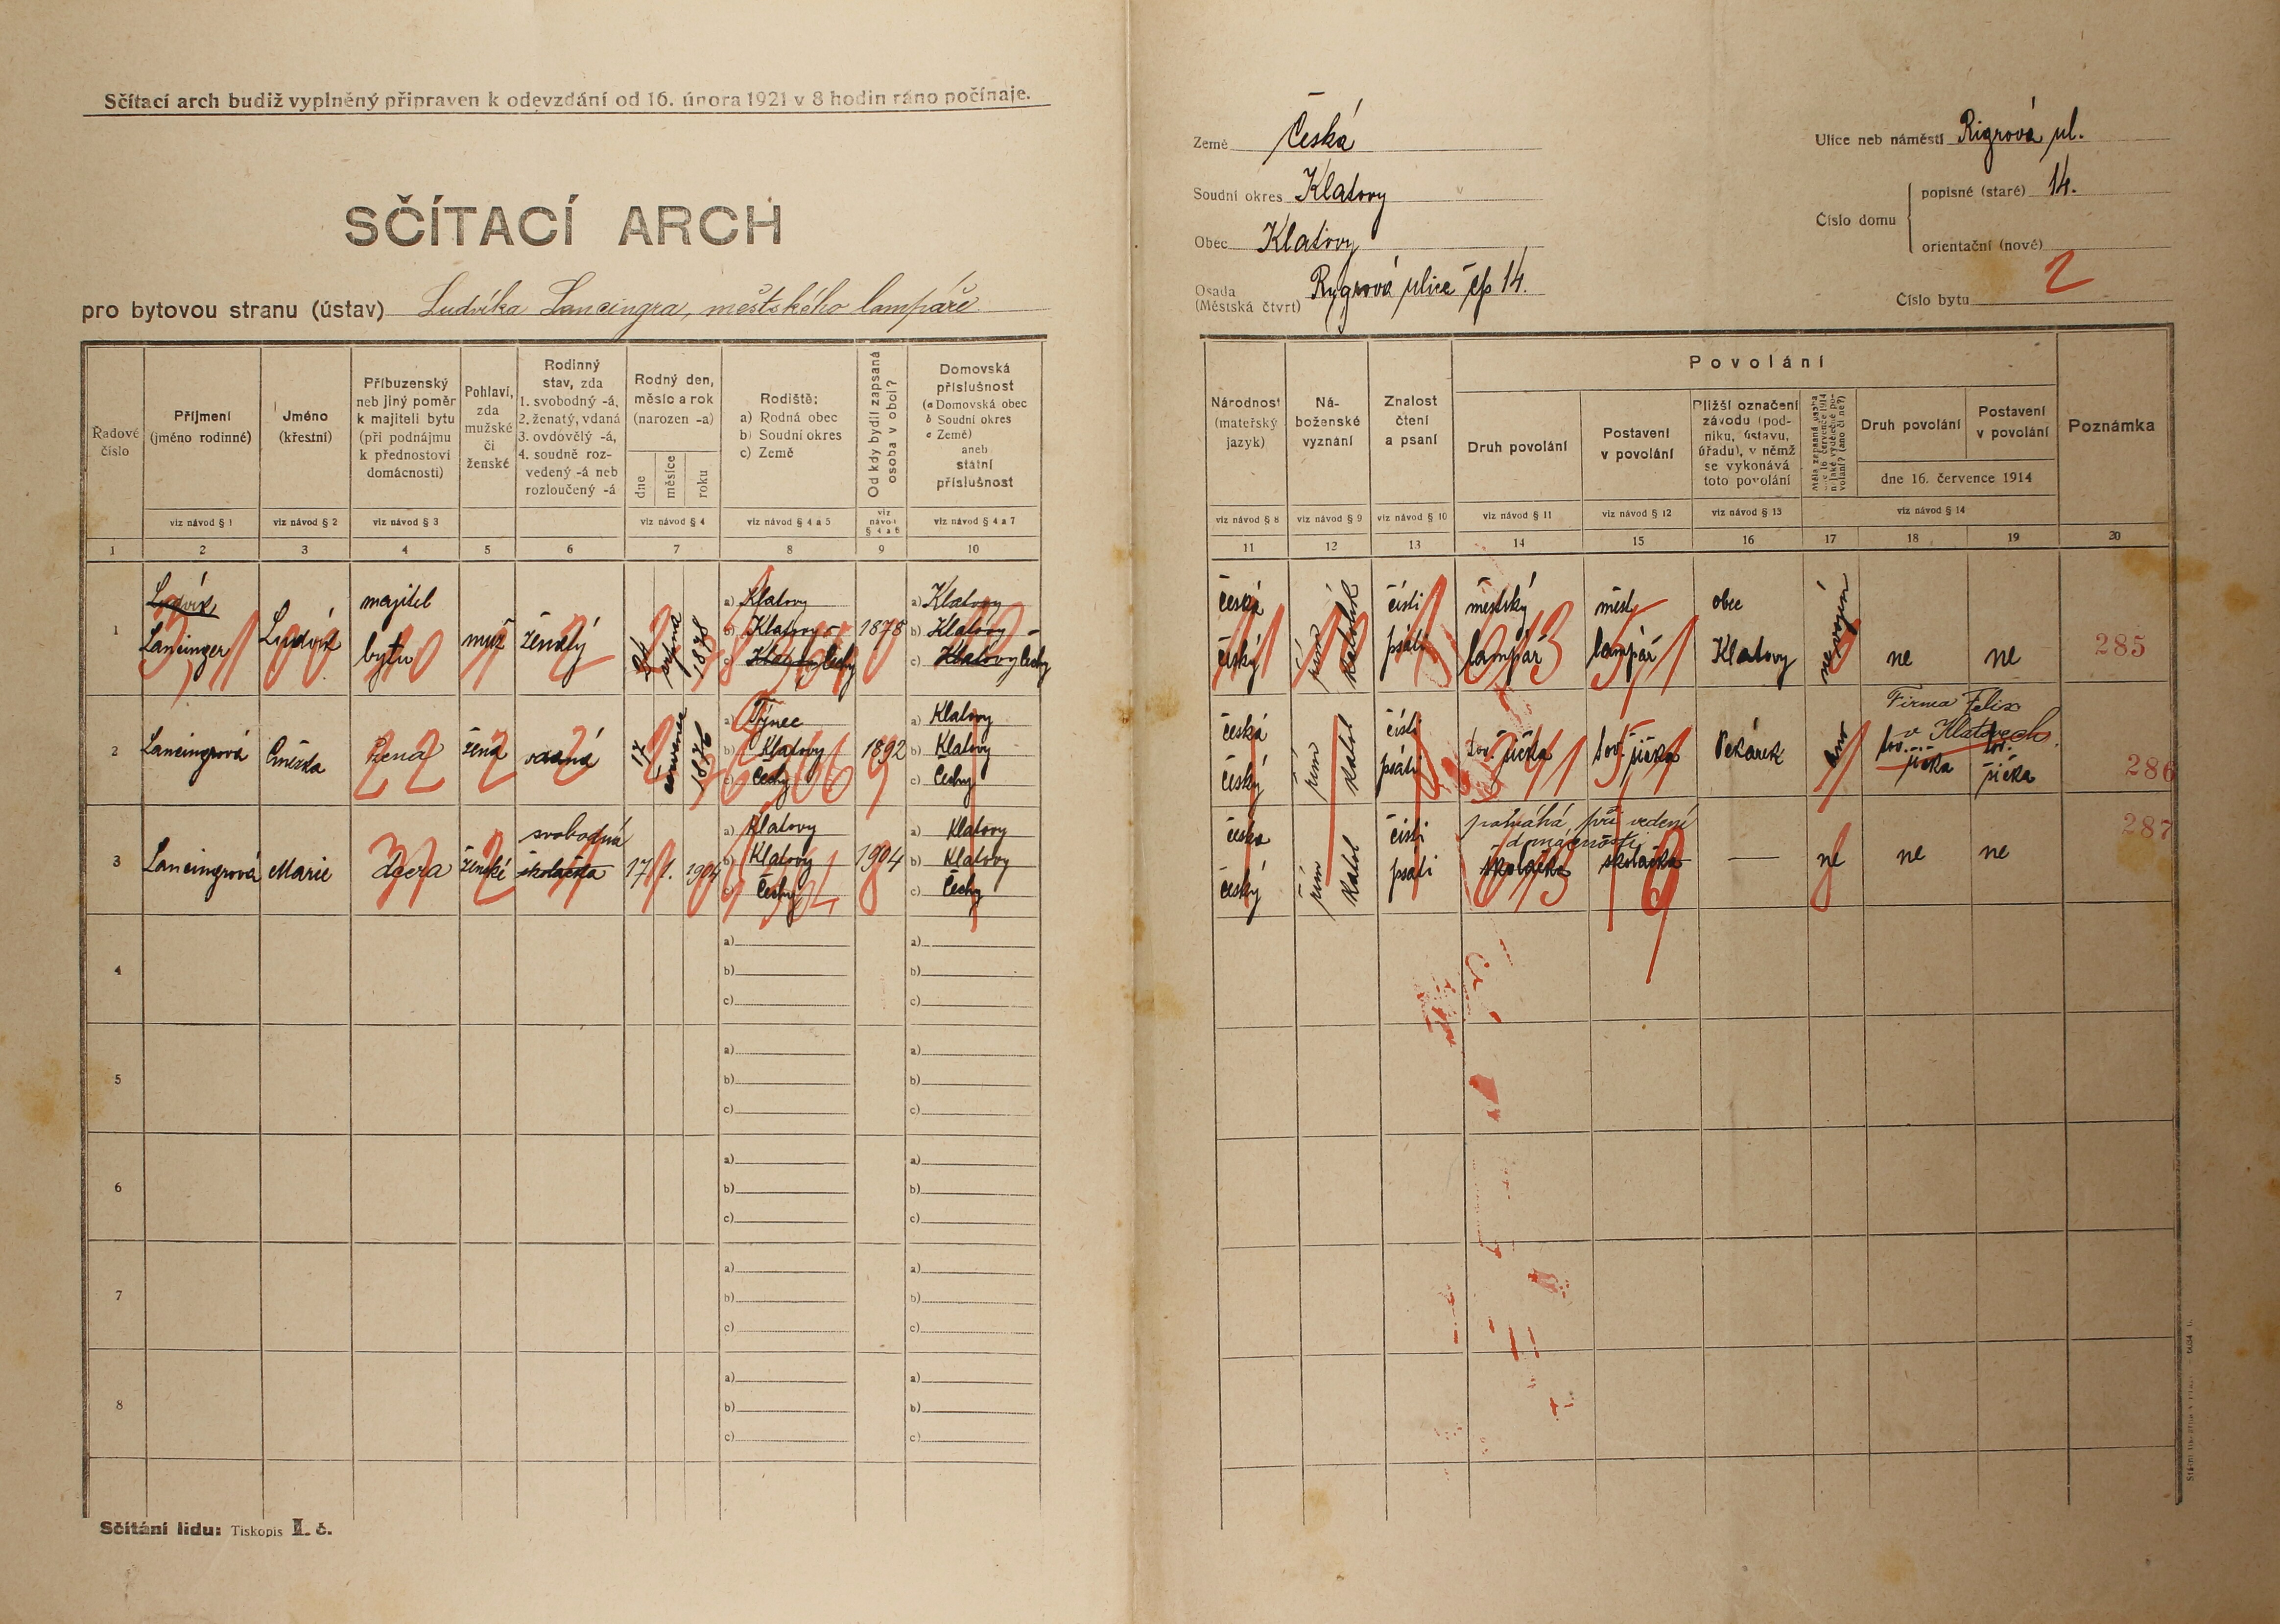 Sčítací arch budiž vyplněný připraven k odevzdání od 16. února 1921 v 8 hodin ráno počínaje.
SČÍTACÍ ARCH
pro bytovou stranu (ústav) Ludvíka Lancingra, městského lampáře
Země Česká
Soudní okres Klatovy
Obec Klatovy
Osada (Městská čtvrť) Rygrová ulice čp 14.
Ulice neb náměstí Rigrová ul.
Číslo domu
popisné (staré) 14.
orientační (nové)
Číslo bytu 2
Řadové číslo
Příjmení (jméno rodinné)
viz návod § 1
Jméno (křestní)
viz návod § 2
Příbuzenský neb jiný poměr k majiteli bytu (při podnájmu k přednostovi domácnosti)
viz návod § 3
Pohlaví, zda mužské či ženské
Rodinný stav, zda
1. svobodný -á,
2. ženatý, vdaná
3. ovdovělý -á,
4. soudně rozvedený -á neb rozloučený -á
Rodný den, měsíc a rok (narozen -a)
dne
měsíce
roku
viz návod § 4
Rodiště:
a) Rodná obec
b) Soudní okres
c) Země
viz návod § 4 a 5
Od kdy bydlí zapsaná osoba v obci?
viz návod § 4 a 6
Domovská příslušnost
(a Domovská obec
b Soudní okres
c Země)
aneb
státní příslušnost
viz návod § 4 a 7
Národnost (mateřský jazyk)
viz návod § 8
Náboženské vyznání
viz návod § 9
Znalost čtení a psaní
viz návod § 10
Povolání
Druh povolání
viz návod § 11
Postavení v povolání
viz návod § 12
Bližší označení závodu (podniku, ústavu, úřadu), v němž se vykonává toto povolání
viz návod § 13
Druh povolání
Postavení v povolání
dne 16. července 1914
viz návod § 14
Poznámka
1 2 3 4 5 6 7 8 9 10
11 12 13 14 15 16 17 18 19 20
1 Ludvík Lancinger Ludvík majitel bytu muž ženatý srpna 1878
a) Klatovy
b) Klatovy
c) Klatovy Čechy
1878
a) Klatovy
b) Klatovy
c) Klatovy Čechy
česká český řím katolík čísti psáti městský lampář měst lampář obec Klatovy ne ne 285
2 Lancingrová Anežka žena žena vdaná 17 července 1876
a) Týnec
b) Klatovy
c) Čechy
1892
a) Klatovy
b) Klatovy
c) Čechy
česká český řím katol čísti psáti tov. šička tov. šička Pekárek ano
Firma Felix
v Klatovech
tov. šička tov. šička 286
3 Lancingrová Marie dcera ženské svobodná školačka 17 1. 1904
a) Klatovy
b) Klatovy
c) Čechy
1904
a) Klatovy
b) Klatovy
c) Čechy
česka český řím katol čísti psáti
pomáhá při vedení
domácnosti
školačka školačka — ne ne ne 287
4
a)
b)
c)
a)
b)
c)
5
a)
b)
c)
a)
b)
c)
6
a)
b)
c)
a)
b)
c)
7
a)
b)
c)
a)
b)
c)
8
a)
b)
c)
a)
b)
c)
Sčítání lidu: Tiskopis II. č.